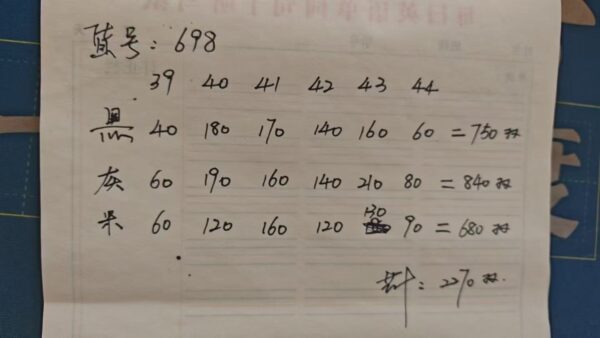 货号：698
39 40 41 42 43 44
黑 40 180 170 140 160 60 = 750双
灰 60 190 160 140 210 80 = 840双
米 60 120 160 120 130 90 = 680双
共计：2270双.